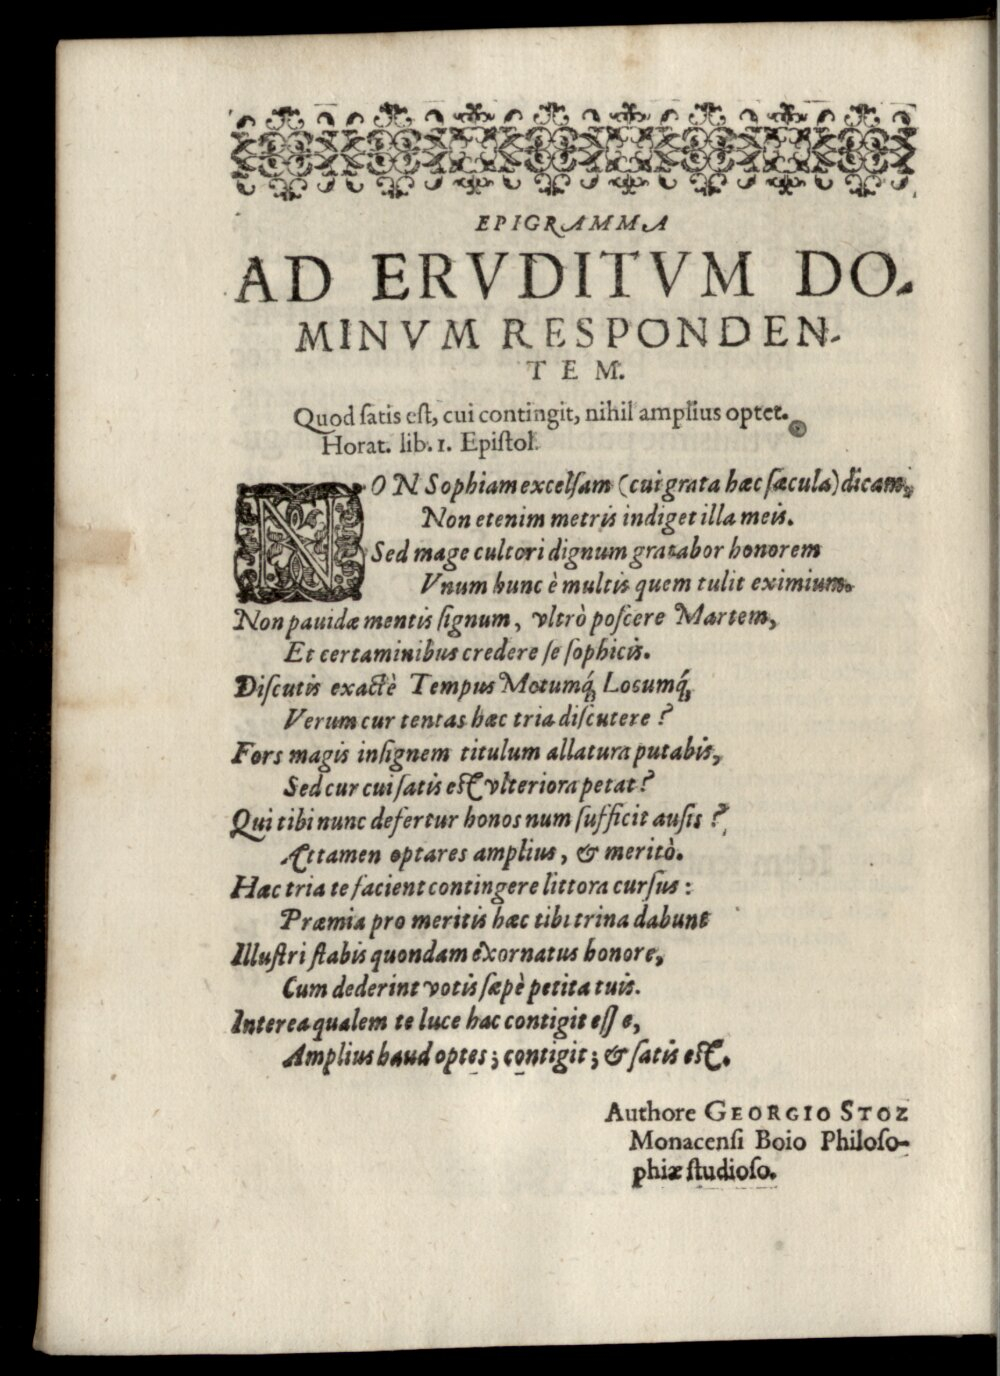 EPIGRAMMA
AD ERVDITVM DO-
MINVM RESPONDEN-
TEM.
Quod ſatis eſt, cui contingit, nihil amplius optet.
Horat. lib. 1. Epiſtol.
NON Sophiam excelſam (cui grata hæc ſæcula) dicam,
Non etenim metris indiget illa meis.
Sed mage cultori dignum gratabor honorem
Vnum hunc è multis quem tulit eximium.
Non pauidæ mentis ſignum, vltrò poſcere Martem,
Et certaminibus credere ſe ſophicis.
Diſcutis exactè Tempus Motumq́; Locumq́;
Verum cur tentas hæc tria diſcutere?
Fors magis inſignem titulum allatura putabis,
Sed cur cui ſatis eſt vlteriora petat?
Qui tibi nunc defertur honos num ſufficit auſis?
Attamen optares amplius, & meritò.
Hæc tria te facient contingere littora curſus:
Præmia pro meritis hæc tibi trina dabunt
Illuſtri ſtabis quondam exornatus honore,
Cum dederint votis ſæpè petita tuis.
Interea qualem te luce hac contigit eſſe,
Amplius haud optes; contigit; & ſatis eſt.
Authore GEORGIO STOZ
Monacenſi Boio Philoſo-
phiæ ſtudioſo.